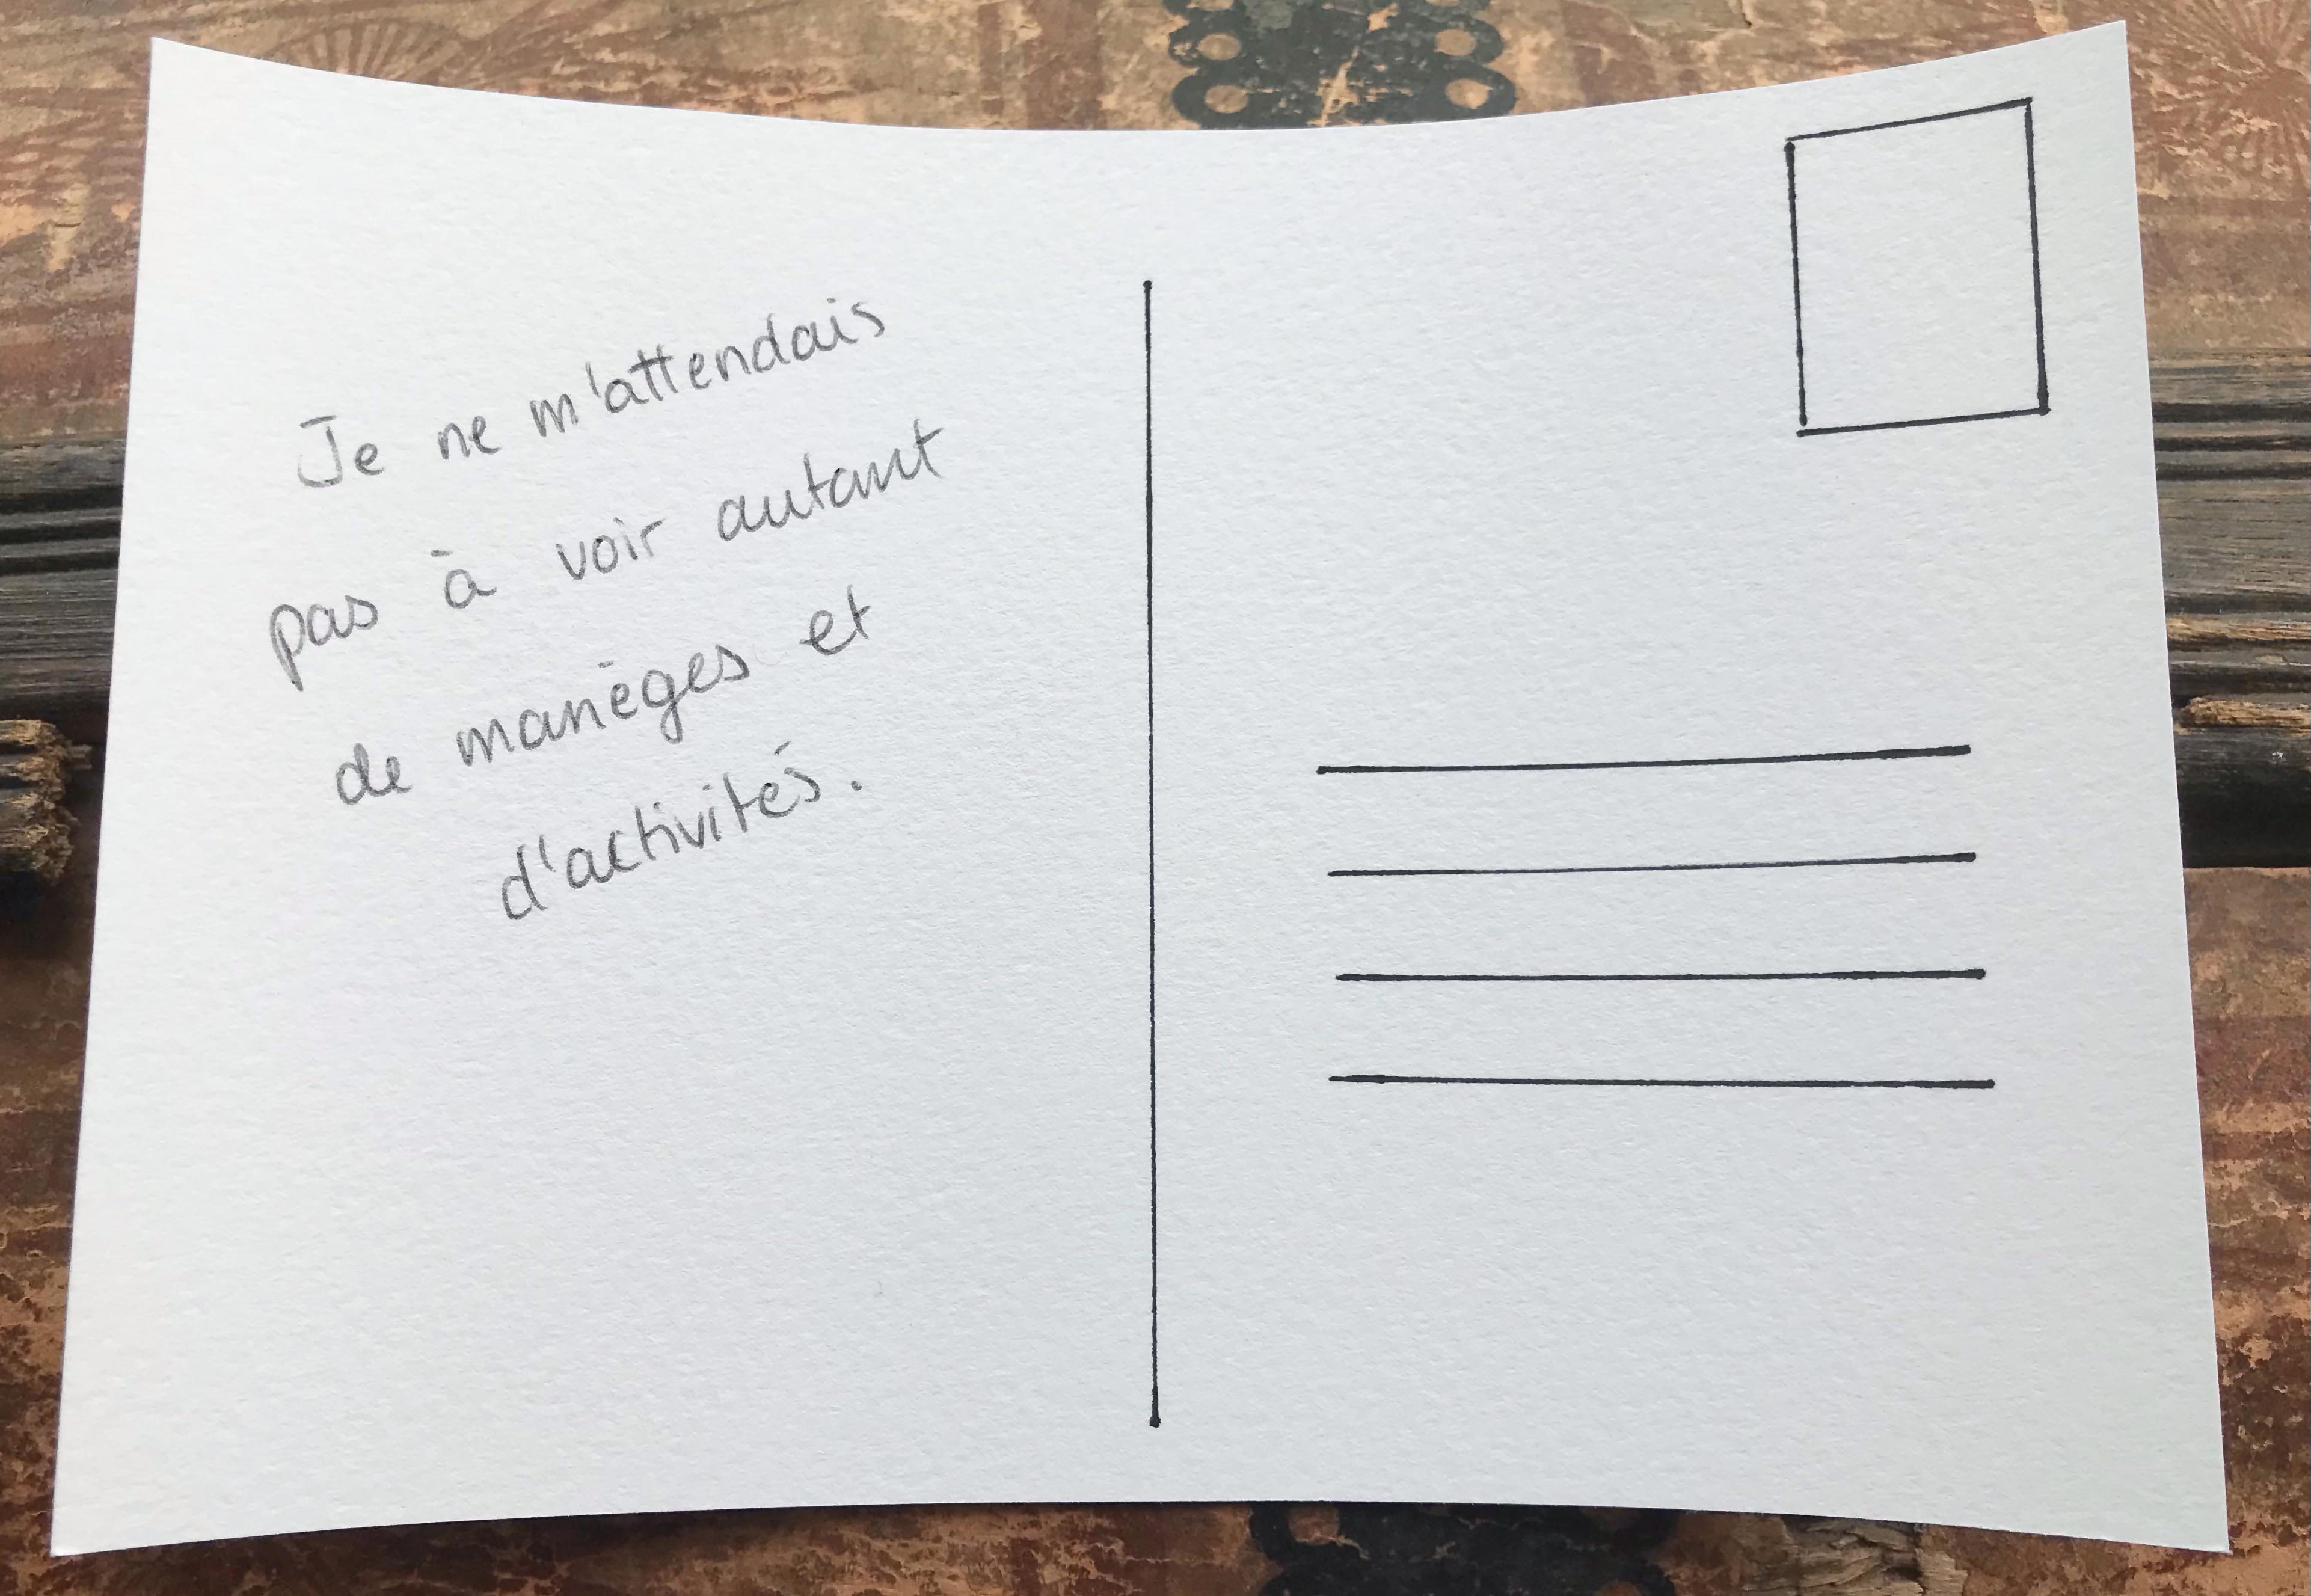 Je ne m'attendais
pas à voir autant
de manèges et
d'activités.